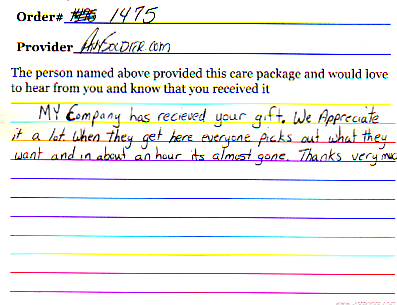 Order# 1475
Provider AnySoldier.com
The person named above provided this care package and would love
to hear from you and know that you received it
MY Company has recieved your gift. We Appreciate
it a lot. When they get here everyone picks out what they
want and in about an hour its almost gone. Thanks very muc